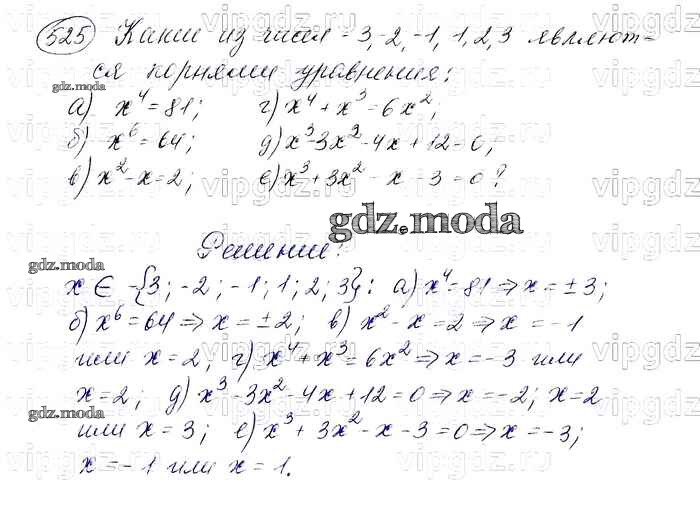 525 Какие из чисел -3,-2,-1,1,2,3 являют-
ся корнями уравнения:
gdz.moda
а) x⁴=81; г) x⁴+x³=6x²;
б) x⁶=64; д) x³-3x²-4x+12=0;
в) x²-x=2; е) x³+3x²-x-3=0?
gdz.moda
Решение:
gdz.moda
x ∈ {-3; -2; -1; 1; 2; 3}: а) x⁴=81⇒x=±3;
б) x⁶=64⇒x=±2; в) x²-x=2⇒x=-1
или x=2; г) x⁴+x³=6x²⇒x=-3 или
x=2; д) x³-3x²-4x+12=0⇒x=-2; x=2
gdz.moda
или x=3; е) x³+3x²-x-3=0⇒x=-3;
x=-1 или x=1.
vipgdz.ru